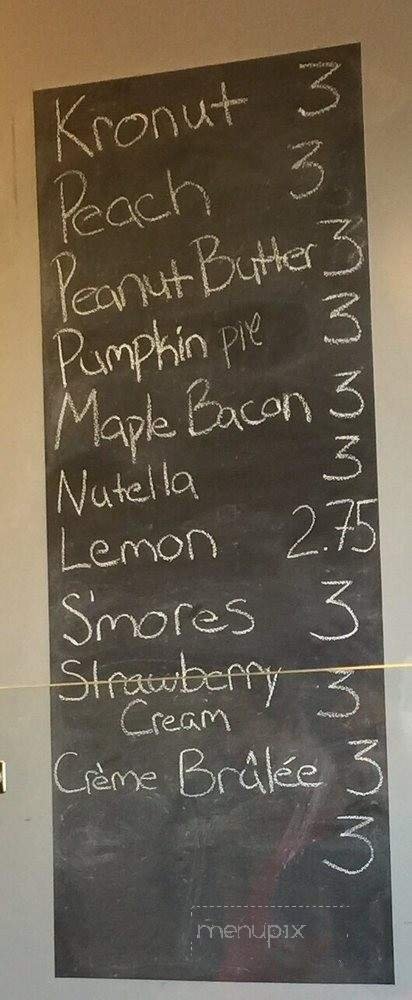 Kronut 3
Peach 3
Peanut Butter 3
Pumpkin pie 3
Maple Bacon 3
Nutella 3
Lemon 2.75
S'mores 3
Strawberry 3
Cream
Crème Brûlée 3
3
menupix